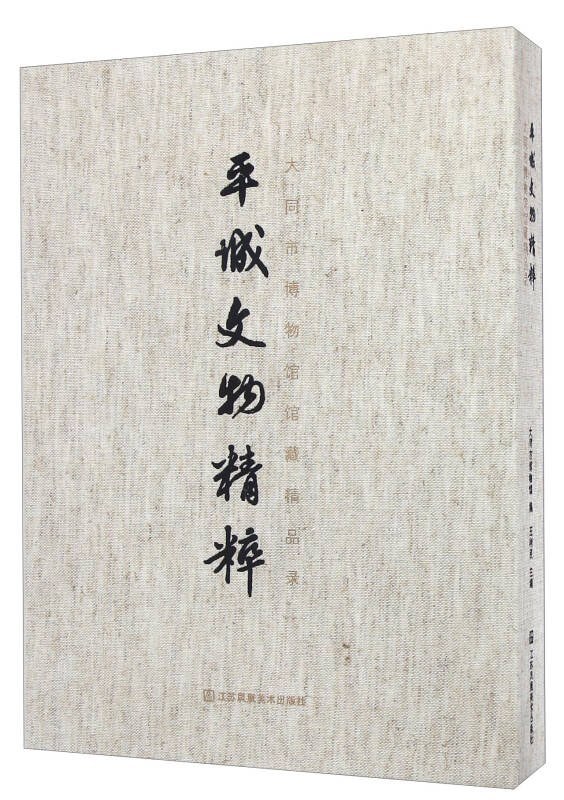 平城文物精粹
大同市博物馆馆藏精品录
江苏凤凰美术出版社
平城文物精粹
大同市博物馆 编 王利民 主编
江苏凤凰美术出版社